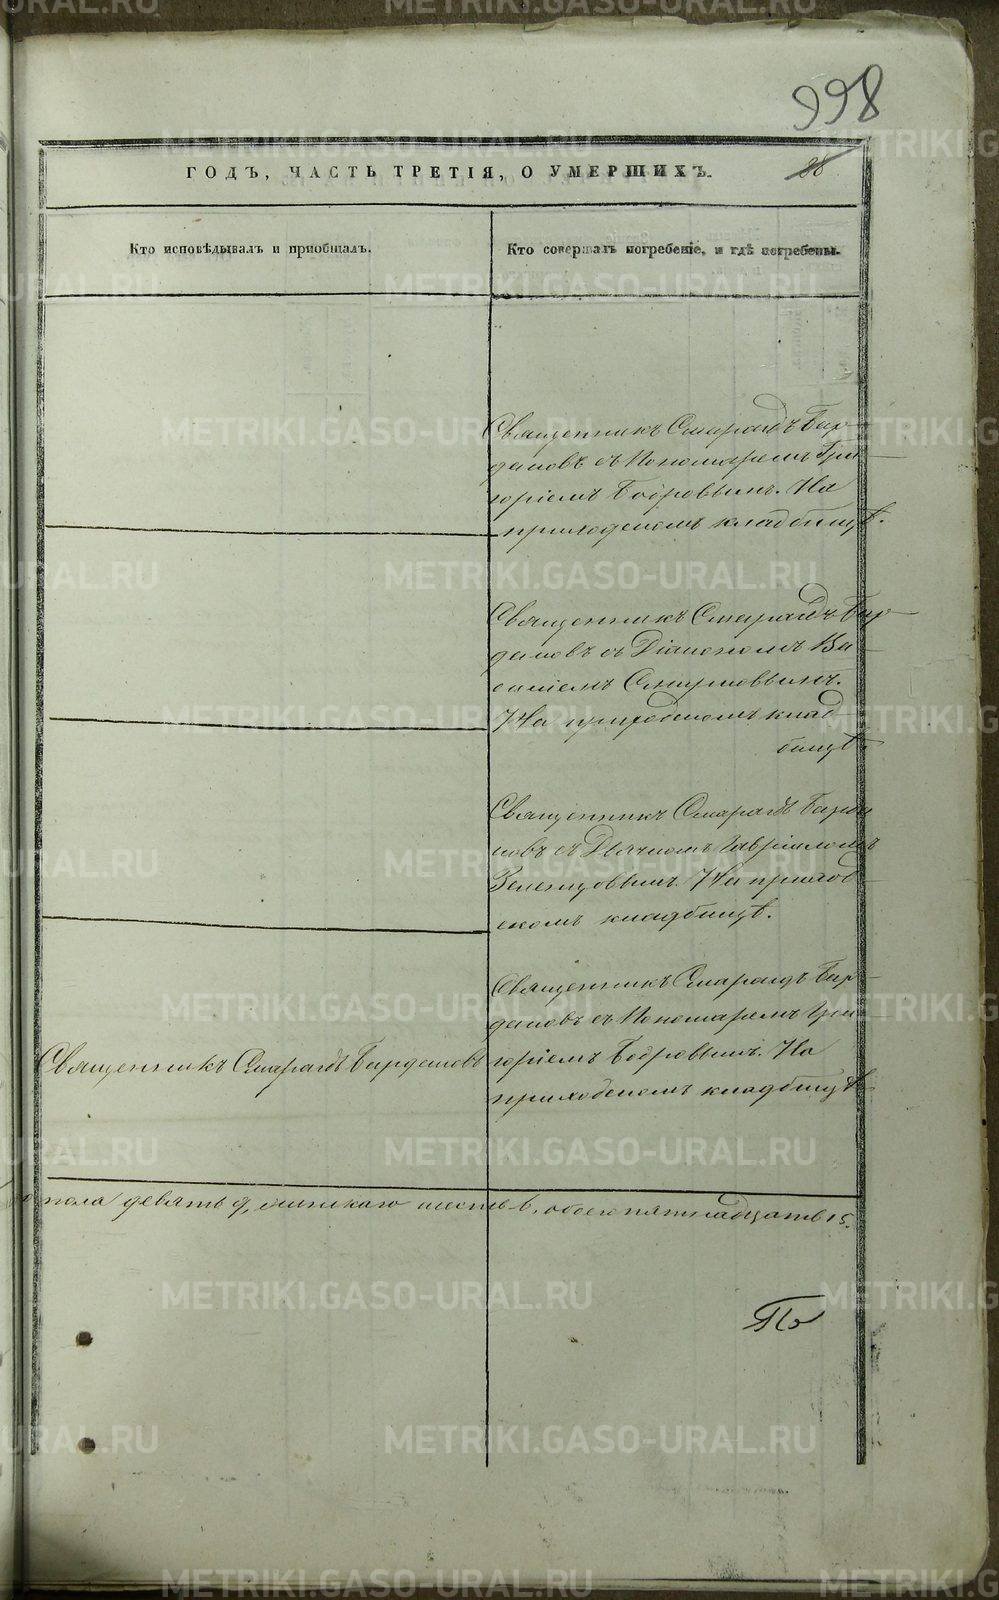 998
88
ГОДЪ, ЧАСТЬ ТРЕТІЯ, О УМЕРШИХЪ.
Кто исповѣдывалъ и пріобщалъ.
Кто совершалъ погребеніе, и гдѣ погребены.
Священникъ Смарагдъ Бар-
с Пономаремъ Гри-
горіемъ Бобровымъ. На
приходскомъ кладбищѣ.
Священникъ Смарагдъ Бар-
съ Діакономъ Ва-
На приходскомъ клад-
бищѣ.
Священникъ Смарагдъ
съ Дьячкомъ Гавріиломъ
Зеленцовымъ. На приход-
скомъ кладбищѣ.
Священникъ Смарагдъ Бар-
съ Пономаремъ Гри-
Священникъ Смарагдъ
горіемъ Бобровымъ. На
приходскомъ кладбищѣ.
пола девять 9, женскаго шесть 6, обоего пятнадцать 15.
По
METRIKI.GASO-URAL.RU